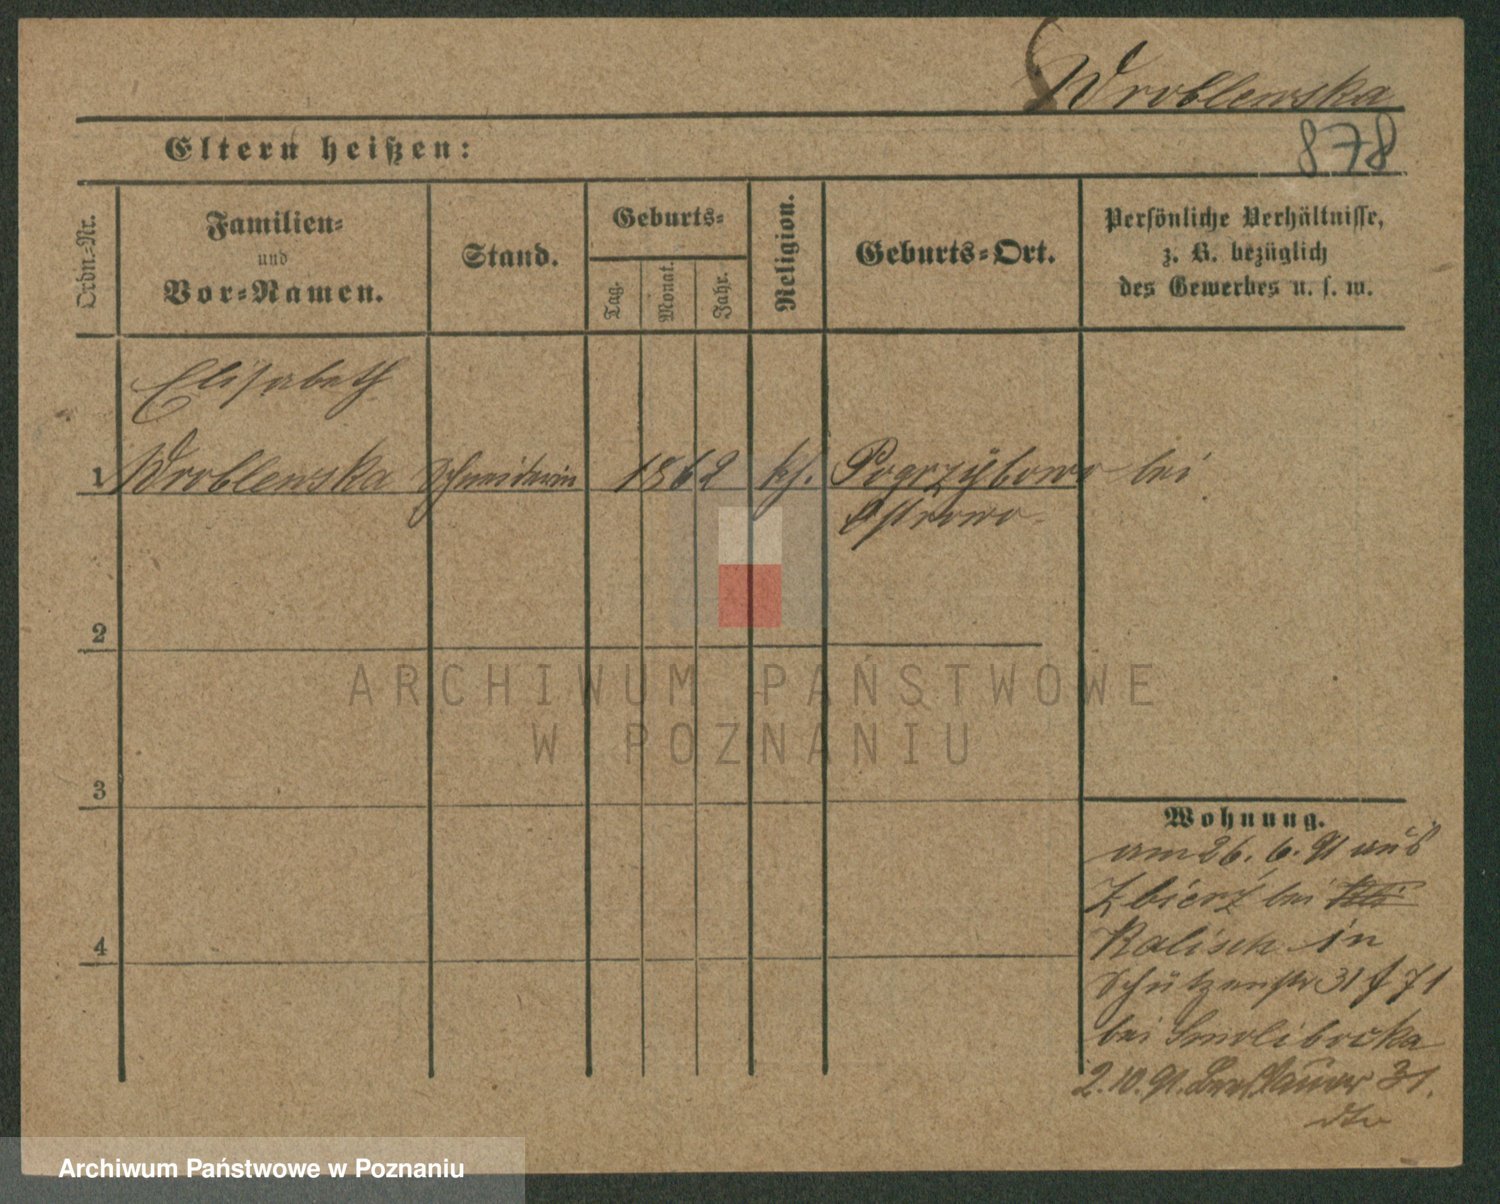 Wroblewska
878
Eltern heißen:
Ordn.-Nr.
Familien-
und
Vor-Namen.
Stand.
Geburts-
Tag.
Monat.
Jahr.
Religion.
Geburts-Ort.
Persönliche Verhältnisse,
z. B. bezüglich
des Gewerbes u. s. w.
Elisabeth
1 Wroblewska Schneiderin 1862 kh. Pogrzybowo bei
Ostrowo.
2
3
4
Wohnung.
am 26. 6. 91 aus
Zbierz bei
Kalisch in
Schützenstr 31
bei Smolibocka
2.10.91. Breslauer 31.
dto
ARCHIWUM PAŃSTWOWE
W POZNANIU
Archiwum Państwowe w Poznaniu